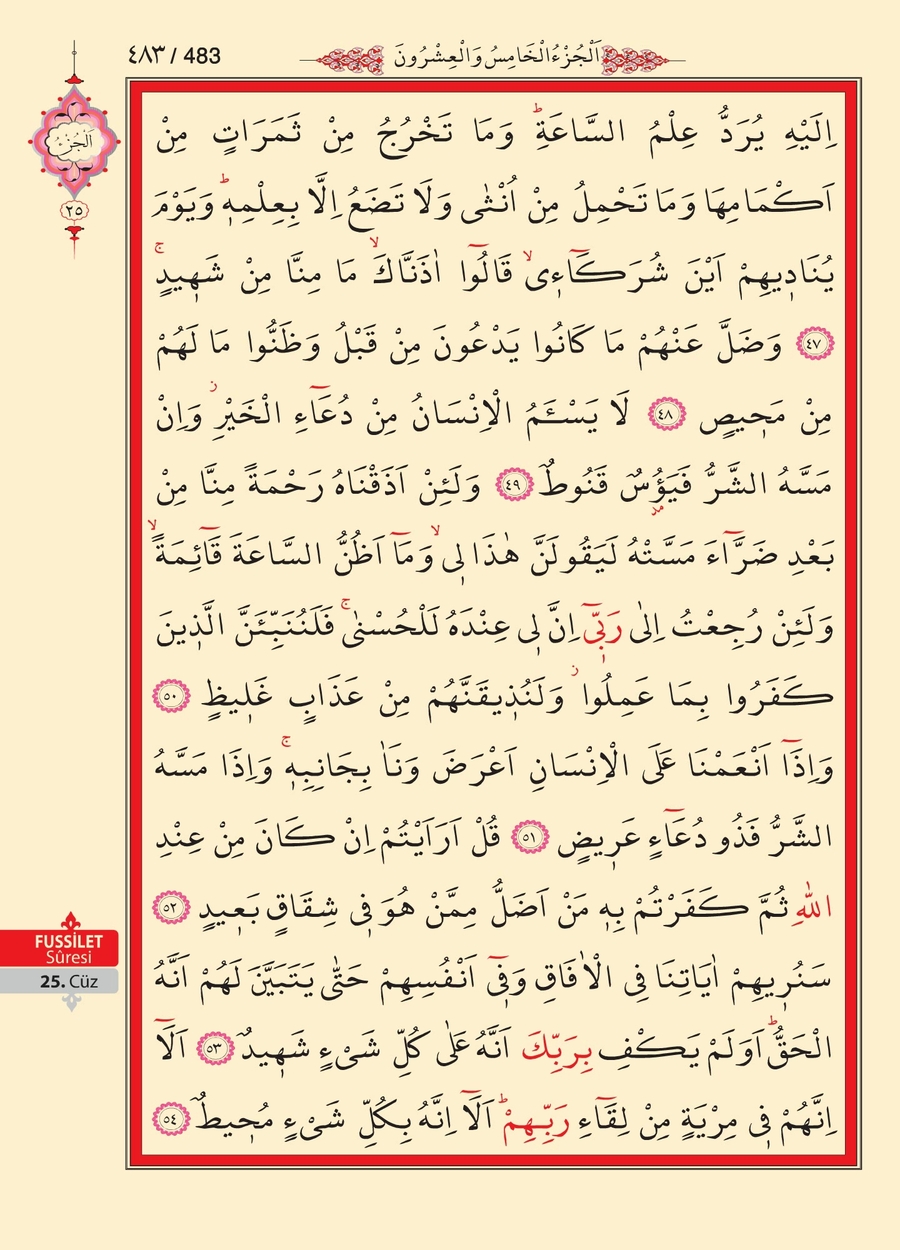 ٤٨٣ / 483
اَلْجُزْءُ الْخَامِسُ وَالْعِشْرُونَ
اَلْجُزْءُ
٢٥
اِلَيْهِ يُرَدُّ عِلْمُ السَّاعَةِۜ وَمَا تَخْرُجُ مِنْ ثَمَرَاتٍ مِنْ
اَكْمَامِهَا وَمَا تَحْمِلُ مِنْ اُنْثٰى وَلَا تَضَعُ اِلَّا بِعِلْمِه۪ۜ وَيَوْمَ
يُنَاد۪يهِمْ اَيْنَ شُرَكَٓاء۪يۙ قَالُٓوا اٰذَنَّاكَۙ مَا مِنَّا مِنْ شَه۪يدٍۚ
﴿٤٧﴾ وَضَلَّ عَنْهُمْ مَا كَانُوا يَدْعُونَ مِنْ قَبْلُ وَظَنُّوا مَا لَهُمْ
مِنْ مَح۪يصٍ ﴿٤٨﴾ لَا يَسْـَٔمُ الْاِنْسَانُ مِنْ دُعَٓاءِ الْخَيْرِۘ وَاِنْ
مَسَّهُ الشَّرُّ فَيَؤُ۫سٌ قَنُوطٌ ﴿٤٩﴾ وَلَئِنْ اَذَقْنَاهُ رَحْمَةً مِنَّا مِنْ
بَعْدِ ضَرَّٓاءَ مَسَّتْهُ لَيَقُولَنَّ هٰذَا ل۪يۙ وَمَٓا اَظُنُّ السَّاعَةَ قَٓائِمَةًۙ
وَلَئِنْ رُجِعْتُ اِلٰى رَبّ۪ٓي اِنَّ ل۪ي عِنْدَهُ لَلْحُسْنٰىۚ فَلَنُنَبِّئَنَّ الَّذ۪ينَ
كَفَرُوا بِمَا عَمِلُواۘ وَلَنُذ۪يقَنَّهُمْ مِنْ عَذَابٍ غَل۪يظٍ ﴿٥٠﴾
وَاِذَٓا اَنْعَمْنَا عَلَى الْاِنْسَانِ اَعْرَضَ وَنَاٰ بِجَانِبِه۪ۚ وَاِذَا مَسَّهُ
الشَّرُّ فَذُو دُعَٓاءٍ عَر۪يضٍ ﴿٥١﴾ قُلْ اَرَاَيْتُمْ اِنْ كَانَ مِنْ عِنْدِ
اللّٰهِ ثُمَّ كَفَرْتُمْ بِه۪ مَنْ اَضَلُّ مِمَّنْ هُوَ ف۪ي شِقَاقٍ بَع۪يدٍ ﴿٥٢﴾
سَنُر۪يهِمْ اٰيَاتِنَا فِي الْاٰفَاقِ وَف۪ٓي اَنْفُسِهِمْ حَتّٰى يَتَبَيَّنَ لَهُمْ اَنَّهُ
الْحَقُّۜ اَوَلَمْ يَكْفِ بِرَبِّكَ اَنَّهُ عَلٰى كُلِّ شَيْءٍ شَه۪يدٌ ﴿٥٣﴾ اَلَٓا
اِنَّهُمْ ف۪ي مِرْيَةٍ مِنْ لِقَٓاءِ رَبِّهِمْۜ اَلَٓا اِنَّهُ بِكُلِّ شَيْءٍ مُح۪يطٌ ﴿٥٤﴾
FUSSİLET
Sûresi
25. Cüz